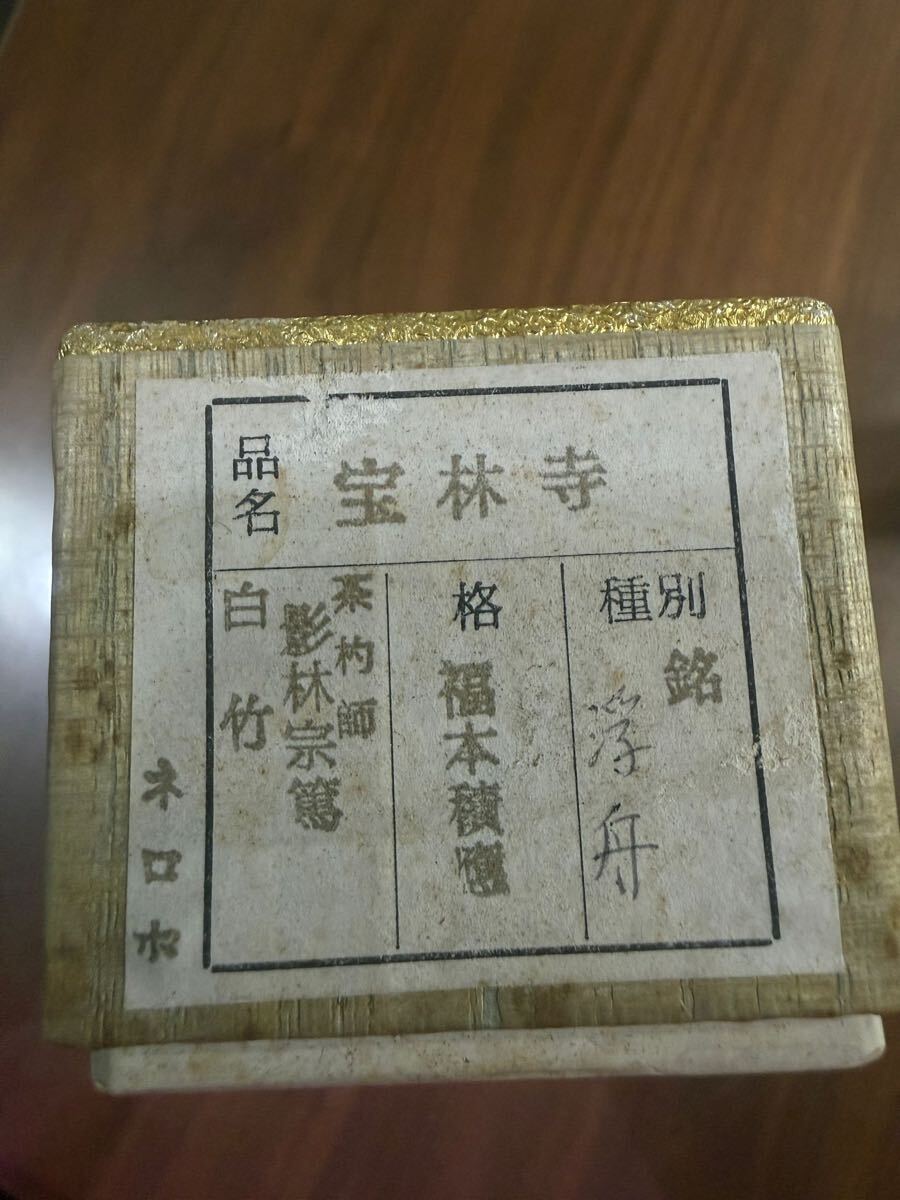 品名
宝林寺
種別
銘
浮舟
格
福本積應
茶杓師
影林宗篤
白竹
ネロホ